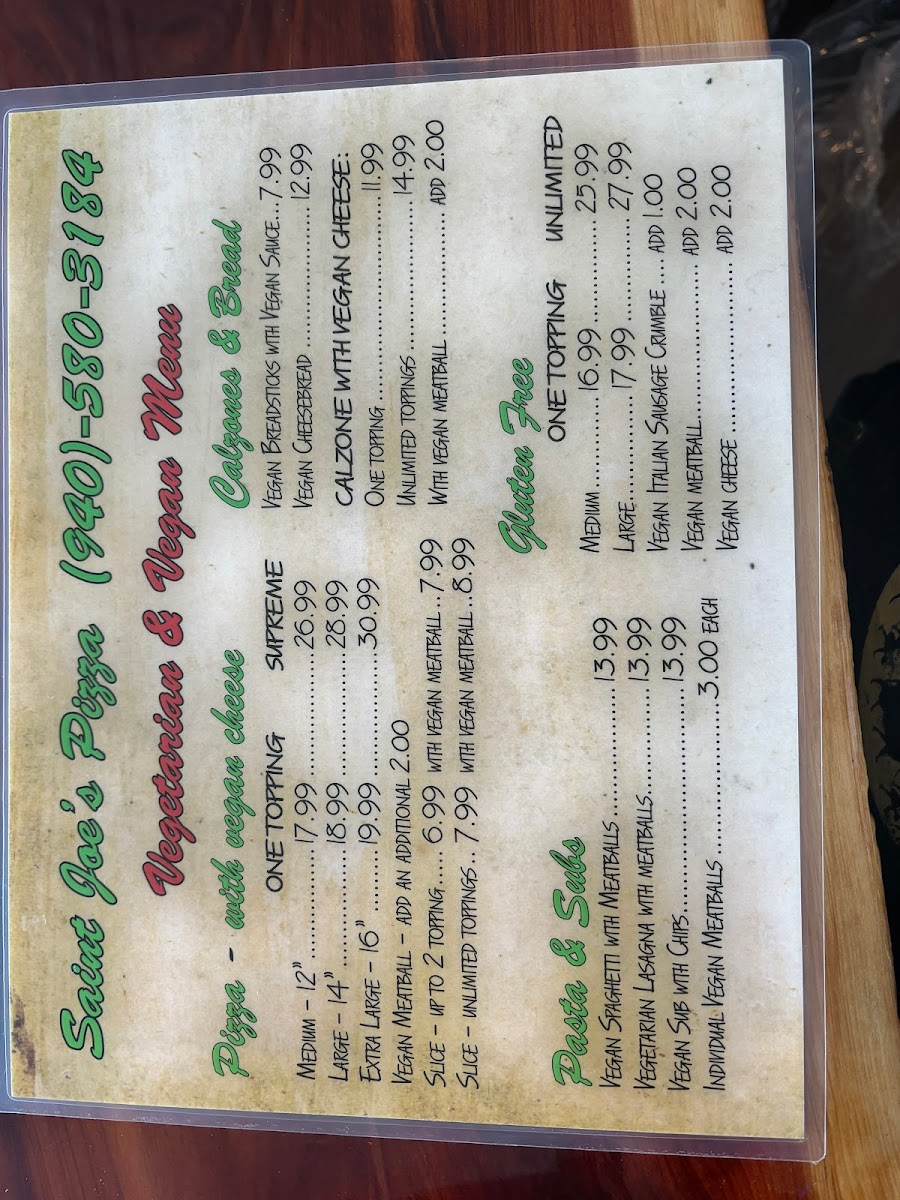 Saint Joe's Pizza (940)-580-3184
Vegetarian & Vegan Menu
Pizza - with vegan cheese
ONE TOPPING SUPREME
MEDIUM - 12" ............ 17.99 ............ 26.99
LARGE - 14" ............ 18.99 ............ 28.99
EXTRA LARGE - 16" ........ 19.99 ............ 30.99
VEGAN MEATBALL - ADD AN ADDITIONAL 2.00
SLICE - UP TO 2 TOPPING.... 6.99 WITH VEGAN MEATBALL..7.99
SLICE - UNLIMITED TOPPINGS.. 7.99 WITH VEGAN MEATBALL..8.99
Calzones & Bread
VEGAN BREADSTICKS WITH VEGAN SAUCE... 7.99
VEGAN CHEESEBREAD .................... 12.99
CALZONE WITH VEGAN CHEESE:
ONE TOPPING ............................ 11.99
UNLIMITED TOPPINGS...................... 14.99
WITH VEGAN MEATBALL................ ADD 2.00
Pasta & Subs
VEGAN SPAGHETTI WITH MEATBALLS.................. 13.99
VEGETARIAN LASAGNA WITH MEATBALLS............... 13.99
VEGAN SUB WITH CHIPS............................ 13.99
INDIVIDUAL VEGAN MEATBALLS .................... 3.00 EACH
Gluten Free
ONE TOPPING UNLIMITED
MEDIUM............ 16.99 .............. 25.99
LARGE............. 17.99 .............. 27.99
VEGAN ITALIAN SAUSAGE CRUMBLE .... ADD 1.00
VEGAN MEATBALL.................... ADD 2.00
VEGAN CHEESE ..................... ADD 2.00